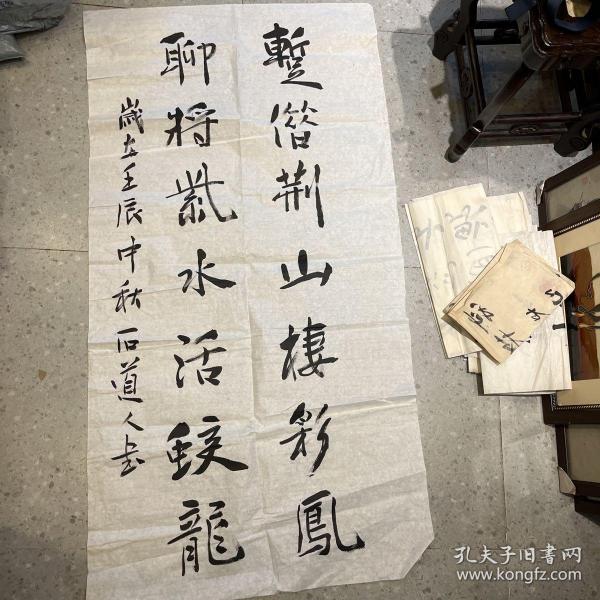 蹔偕荆山棲彩鳳
聊将紫水活蛟龍
歲在壬辰中秋石道人書
孔夫子旧书网
www.kongfz.com